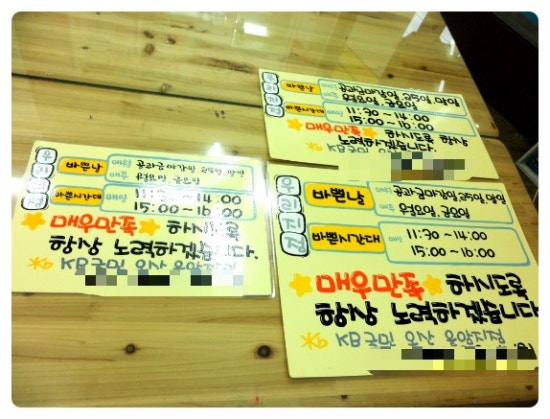 우리지점
바쁜날 매월 공과금마감일, 25일, 말일
매주 월요일, 금요일
바쁜시간대 매일 11:30~14:00
15:00~16:00
매우만족 하시도록
항상 노력하겠습니다.
우리지점
바쁜날 매월 공과금마감일 25일, 말일
매주 월요일 금요일
바쁜시간대 매일 11:30~14:00
15:00~16:00
매우만족 하시도록
항상 노력하겠습니다.
KB국민 오산 운암지점
우리지점
바쁜날 매월 공과금마감일, 25일, 말일
매주 월요일, 금요일
바쁜시간대 매일 11:30~14:00
15:00~16:00
매우만족 하시도록
항상 노력하겠습니다
KB국민 오산 운암지점